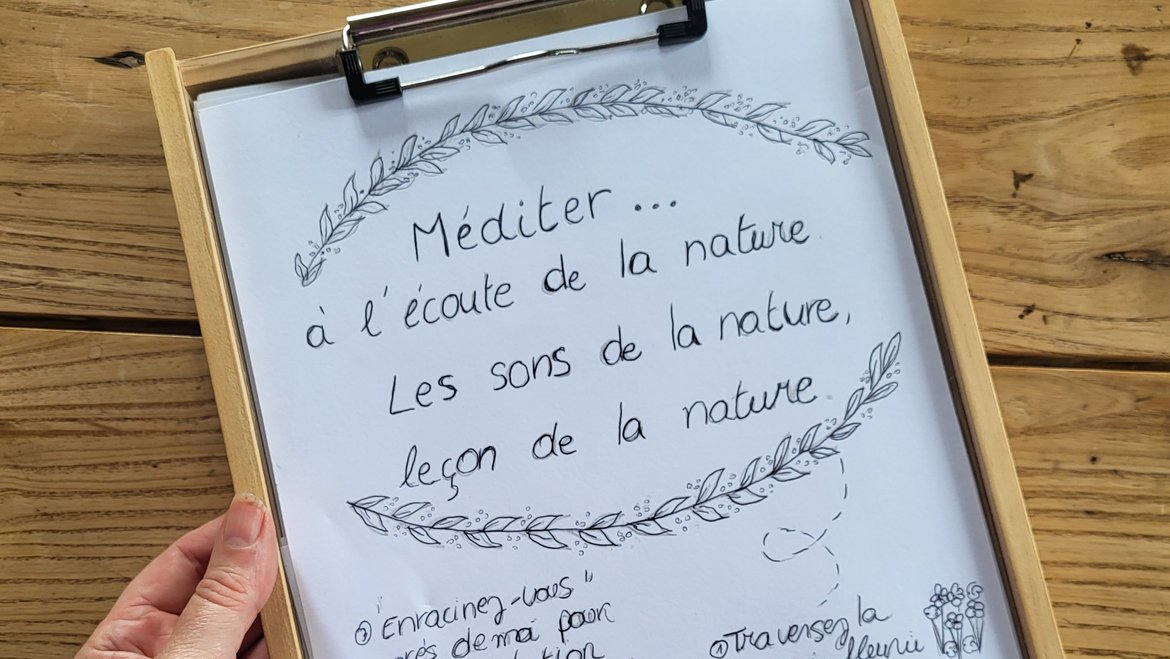 Méditer...
à l'écoute de la nature
Les sons de la nature,
leçon de la nature
③ "Enracinez-vous"
près de moi pour
① Traversez la
fleurie